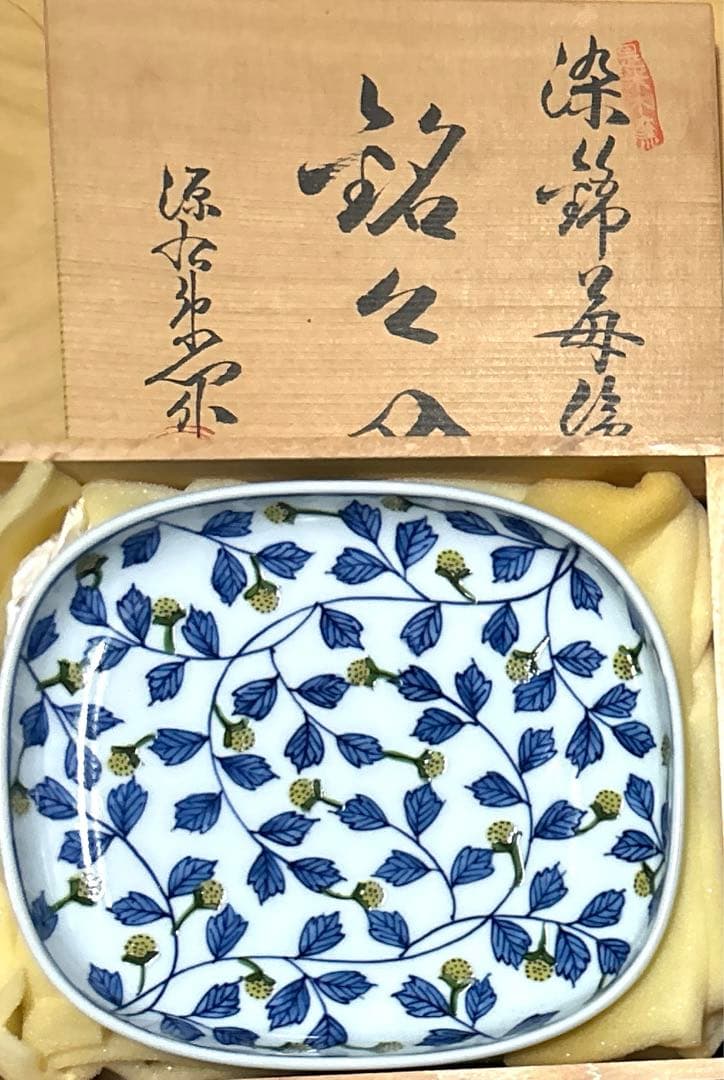 染錦苺絵
銘々皿
源右衛門窯